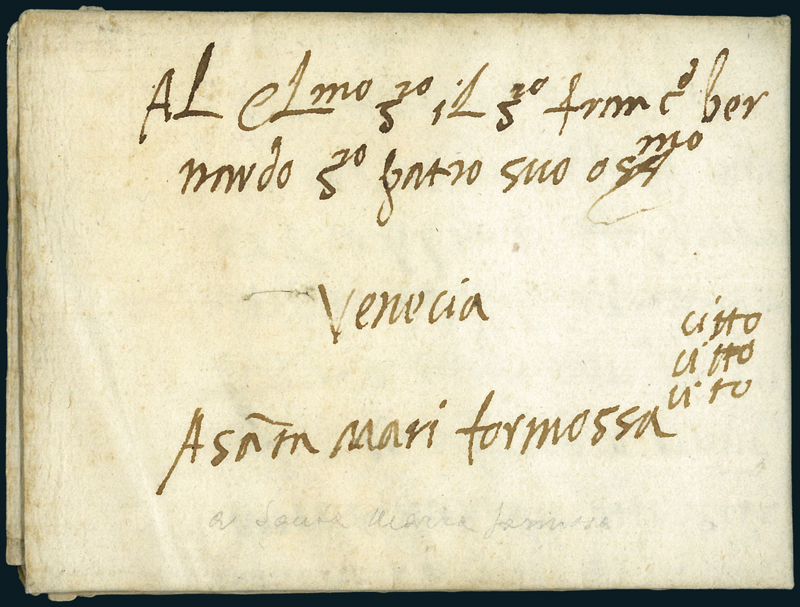 Al Cl.mo S.or il S.or franc.o ber
nardo S.or patro suo oss.mo
Venecia
citto
citto
cito
A sãta Mari formossa
a Santa Maria formosa